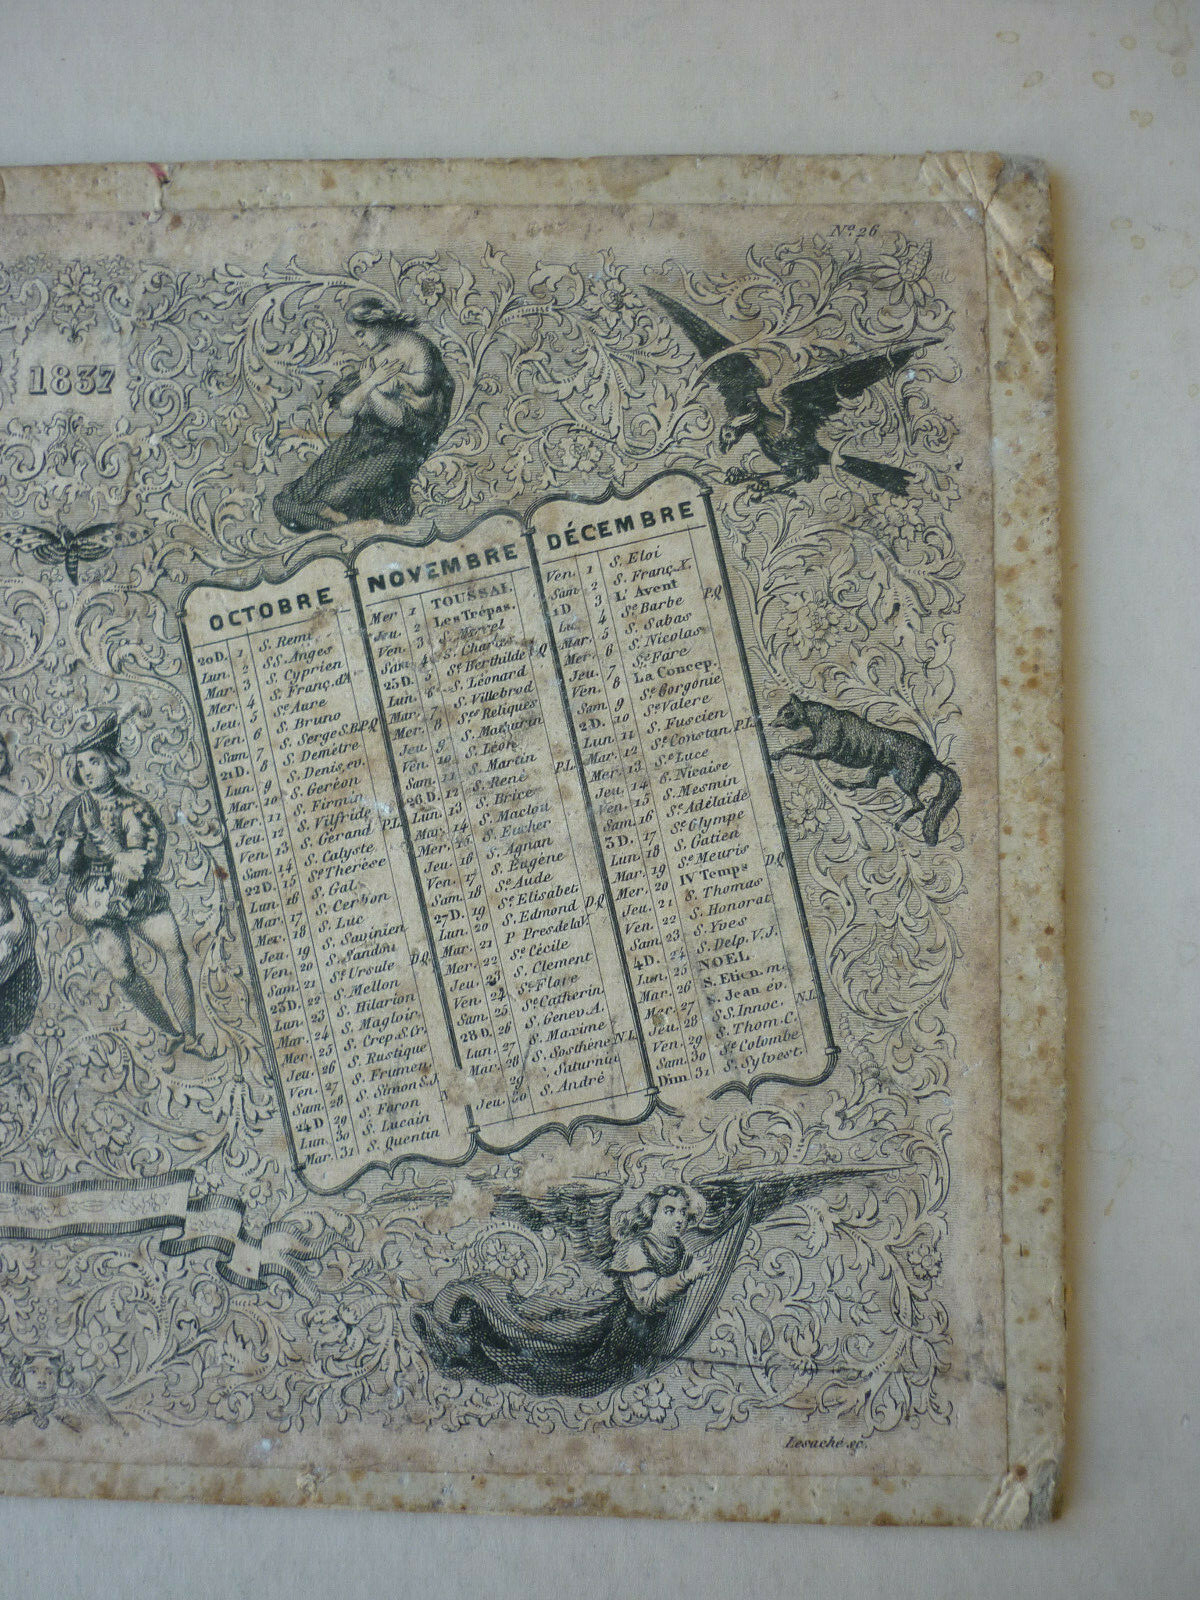 Nº 26
1837
OCTOBRE
20 D. 1 S. Remi
Lun. 2 SS. Anges
Mar. 3 S. Cyprien
Mer. 4 S. Franç. d'A
Jeu. 5 Sᵉ Aure
Ven. 6 S. Bruno
Sam 7 S. Serge S.B. P.Q
21 D. 8 S. Demetre
Lun. 9 S. Denis, ev.
Mar. 10 S. Geréon
Mer. 11 S. Firmin
Jeu. 12 S. Vilfride
Ven. 13 S. Gerand P.L.
Sam. 14 S. Calyste
22 D. 15 Sᵉ Therèse
Lun. 16 S. Gal
Mar. 17 S. Cerbon
Mer. 18 S. Luc
Jeu. 19 S. Savinien
Ven. 20 S.
Sam. 21 Sᵉ Ursule D.Q
23 D. 22 S. Mellon
Lun. 23 S. Hilarion
Mar. 24 S. Magloir
Mer. 25 S. Crep. S. Cr.
Jeu. 26 S. Rustique
Ven. 27 S. Frumen
Sam. 28 S. Simon S. J
24 D 29 S. Faron
Lun. 30 S. Lucain
Mar. 31 S. Quentin
NOVEMBRE
Mer 1 TOUSSAI.
Jeu. 2 Les Trépas.
Ven. 3 S. Marcel
Sam. 4 S. Charles
25 D. 5 Sᵉ Berthilde Q
Lun. 6 S. Léonard
Mar. 7 S. Villebrod
Mer. 8 Sᵉˢ Reliques
Jeu. 9 S. Maturin
Ven. 10 S. Léon
Sam. 11 S. Martin
26 D. 12 S. René P.L.
Lun. 13 S. Brice
Mar. 14 S. Maclou
Mer. 15 S. Eucher
Jeu. 16 S. Agnan
Ven. 17 S. Eugène
Sam. 18 Sᵉ Aude
27 D. 19 Sᵉ Elisabet
Lun. 20 S. Edmond D.Q
Mar. 21 P Pres de la V.
Mer. 22 Sᵉ Cécile
Jeu. 23 S. Clement
Ven. 24 Sᵉ Flore
Sam. 25 Sᵉ Catherin
28 D. 26 S. Genev. A.
Lun. 27 S. Maxime
Mar. 28 S. Sosthène N.L.
29 Saturnin
Jeu. 30 S. André
DÉCEMBRE
Ven. 1 S. Eloi
Sam 2 S. Franç. X.
1 D 3 L'Avent
Lu. 4 Sᵉ Barbe P.Q
Mar. 5 S. Sabas
Mer. 6 S. Nicolas
Jeu. 7 Sᵉ Fare
Ven. 8 La Concep.
Sam 9 Sᵉ Gorgonie
2 D. 10 Sᵉ Valere
Lun 11 S. Fuscien
Mar. 12 Sᵉ Constan. P.L.
Mer. 13 Sᵉ Luce
Jeu. 14 S. Nicaise
Ven. 15 S. Mesmin
Sam. 16 Sᵉ Adélaïde
3 D. 17 Sᵉ Olympe
Lun. 18 S. Gatien
Mar. 19 Sᵉ Meuris
Mer. 20 IV Temps D.Q
Jeu. 21 S. Thomas
Ven. 22 S. Honorat
Sam. 23 S. Yves
4 D. 24 S. Delp. V. J.
Lun. 25 NOEL
Mar. 26 S. Etien. m.
Mer. 27 S. Jean év. N.L.
Jeu. 28 SS. Innoc.
Ven. 29 S. Thom. C.
Sam. 30 Sᵉ Colombe
Dim. 31 S. Sylvest.
Lesaché sc.